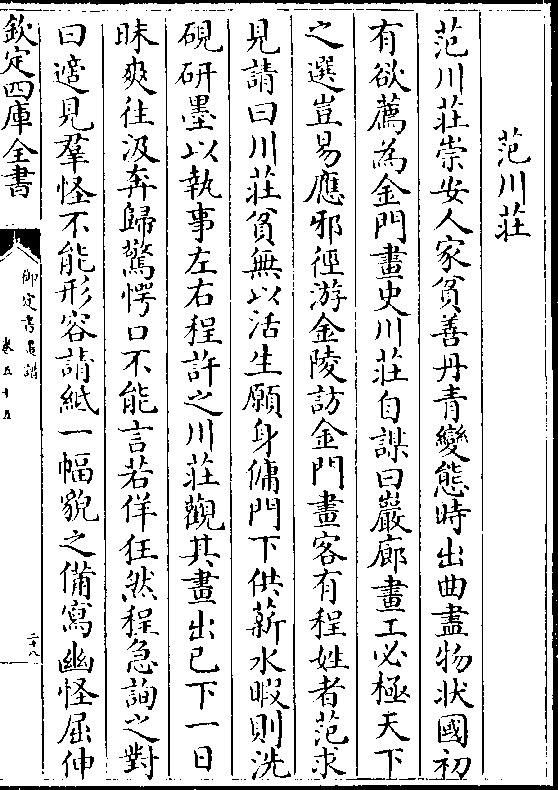 范川莊
范川莊崇安人家貧善丹青變態時出曲盡物狀國初
有欲薦為金門畫史川莊自謀曰巖廊畫工必極天下
之選豈易應邪徑游金陵訪金門畫客有程姓者范求
見請曰川莊貧無以活生願身傭門下供薪水暇則洗
硯研墨以執事左右程許之川莊觀其畫出己下一日
昧爽往汲奔歸驚愕口不能言若佯狂然程急詢之對
曰適見羣怪不能形容請紙一幅貌之備寫幽怪屈伸
欽定四庫全書
御定書畫譜
卷五十五
二十八